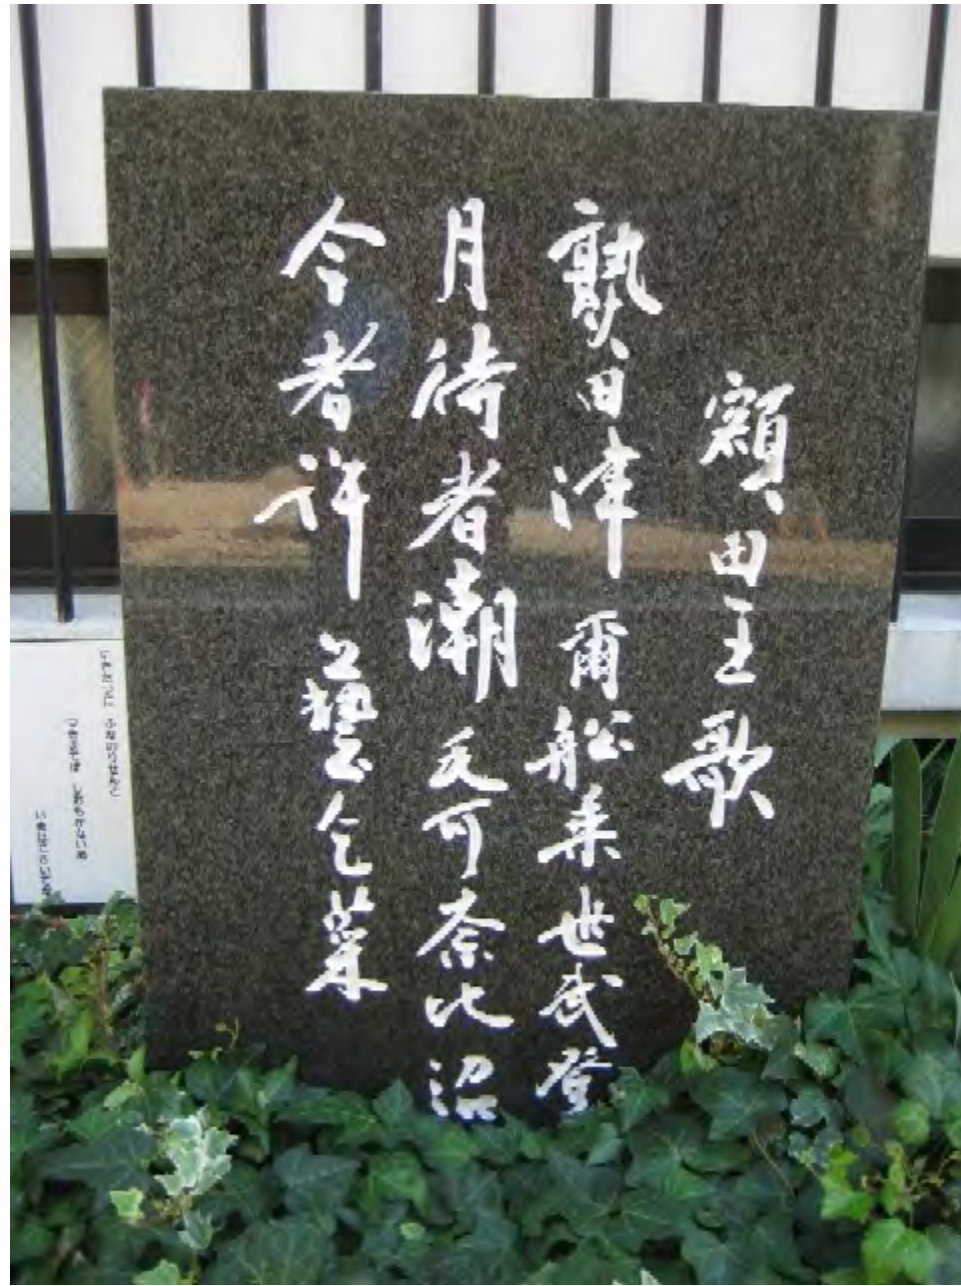 額田王歌
熟田津爾船乗世武登
月待者潮毛可奈比沼
今者許藝乞菜
にきたつに ふなのりせんと
つきまてば しおもかないぬ
いまはこぎいでな